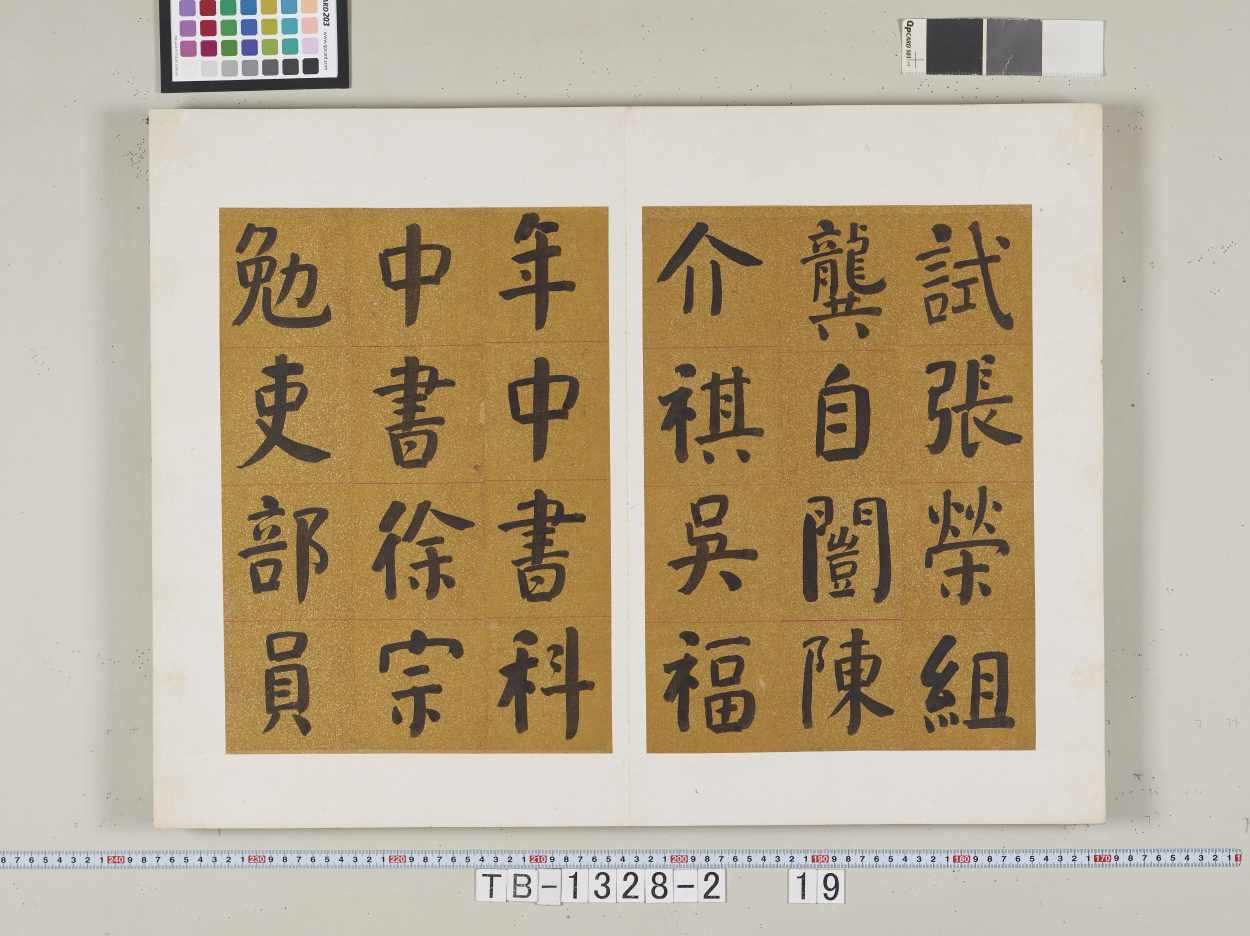 試張榮組
龔自闓陳
介祺吳福
年中書科
中書徐宗
勉吏部員
TB-1328-2 19